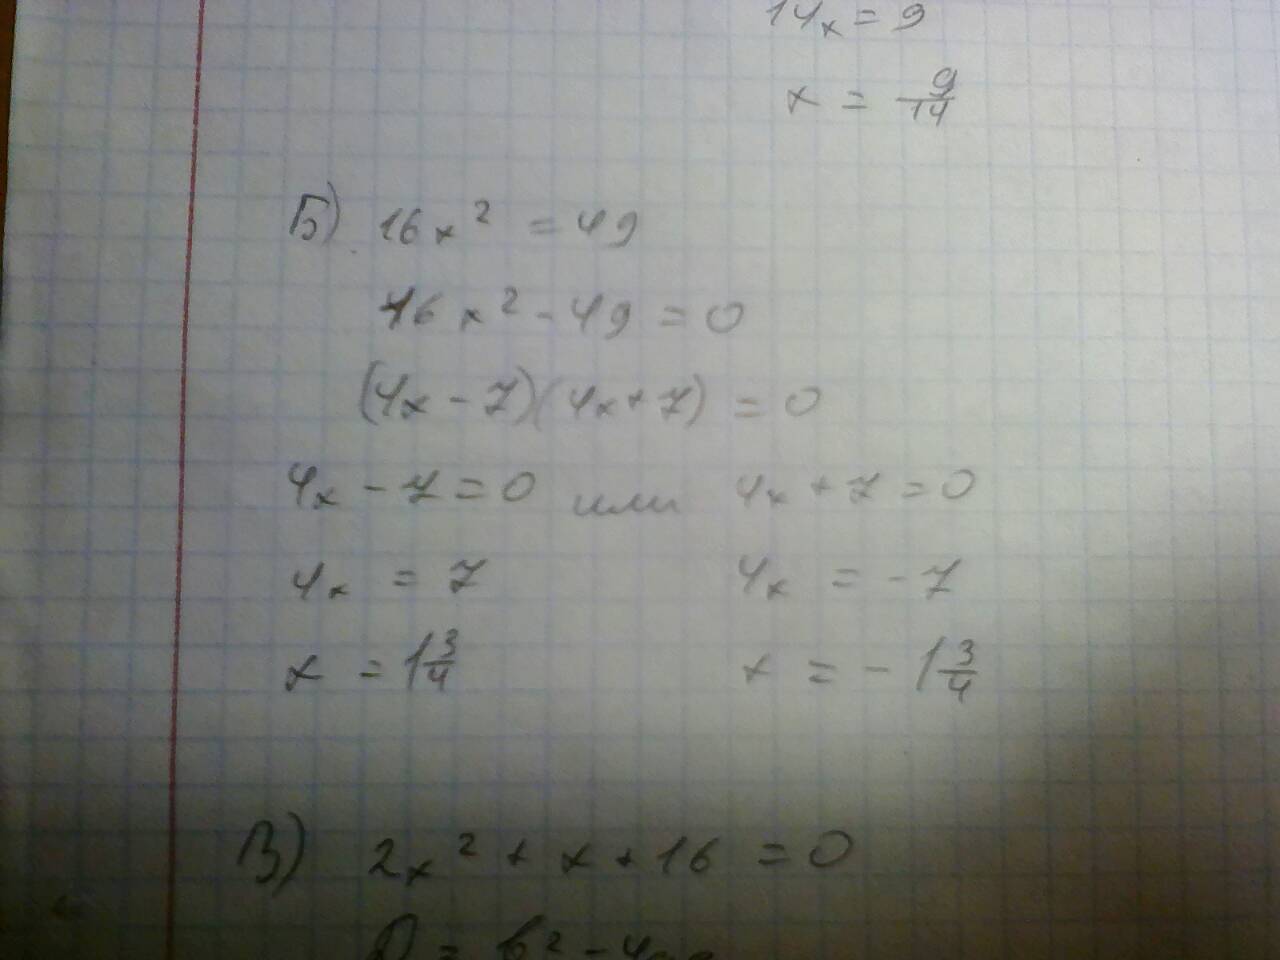 14x = 9
x = 9/14
Б) 16x² = 49
16x² - 49 = 0
(4x - 7)(4x + 7) = 0
4x - 7 = 0 или 4x + 7 = 0
4x = 7 4x = -7
x = 1 3/4 x = - 1 3/4
В) 2x² + x + 16 = 0
D = b² - 4ac